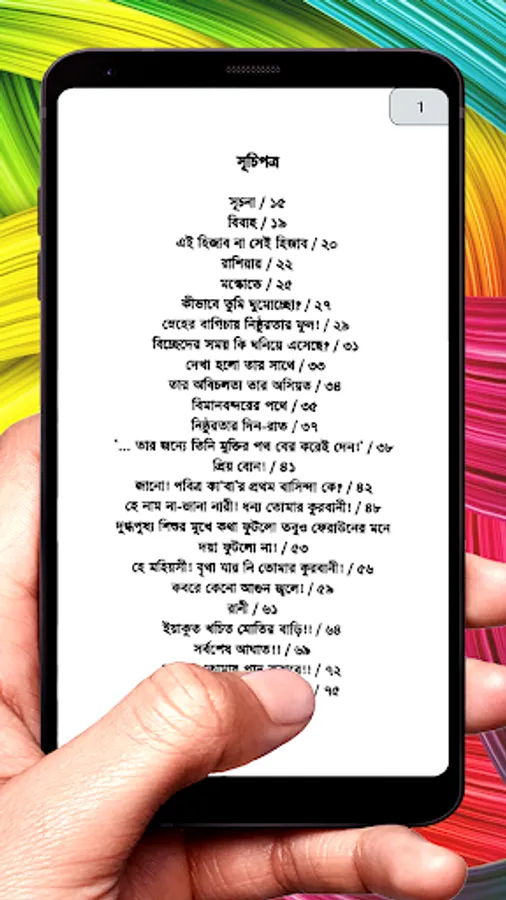 1
সূচিপত্র
সূচনা / ১৫
বিবাহ / ১৯
এই হিজাব না সেই হিজাব / ২০
রাশিয়ায় / ২২
মস্কোতে / ২৫
কীভাবে তুমি ঘুমোচ্ছো? / ২৭
স্নেহের বাগিচায় নিষ্ঠুরতার মূল! / ২৯
বিচ্ছেদের সময় কি ঘনিয়ে এসেছে? / ৩১
দেখা হলো তার সাথে / ৩৩
তার অবিচলতা তার অসিয়ত / ৩৪
বিমানবন্দরের পথে / ৩৫
নিষ্ঠুরতার দিন-রাত / ৩৭
'... তার জন্যে তিনি মুক্তির পথ বের করেই দেন।' / ৩৮
প্রিয় বোন! / ৪১
জানো! পবিত্র কা'বা'র প্রথম বাসিন্দা কে? / ৪২
হে নাম না-জানা নারী! ধন্য তোমার কুরবানী! / ৪৮
দুগ্ধপুষ্য শিশুর মুখে কথা ফুটলো তবুও ফেরাউনের মনে
দয়া ফুটলো না! / ৫৩
হে মহিয়সী! বৃথা যায় নি তোমার কুরবানী! / ৫৬
কবরে কেনো আগুন জ্বলে! / ৫৯
রানী / ৬১
ইয়াকুত খচিত মোতির বাড়ি!! / ৬৪
সর্বশেষ আঘাত!! / ৬৯
/ ৭২
/ ৭৫